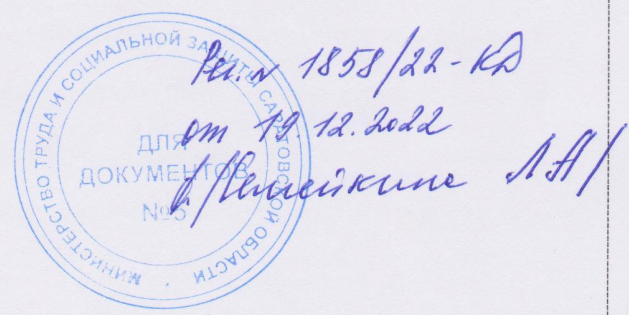 МИНИСТЕРСТВО ТРУДА И СОЦИАЛЬНОЙ ЗАЩИТЫ САРАТОВСКОЙ ОБЛАСТИ
ДЛЯ
ДОКУМЕНТОВ
№5
Рег. № 1858/22-КД
от 19.12.2022
Л.А/